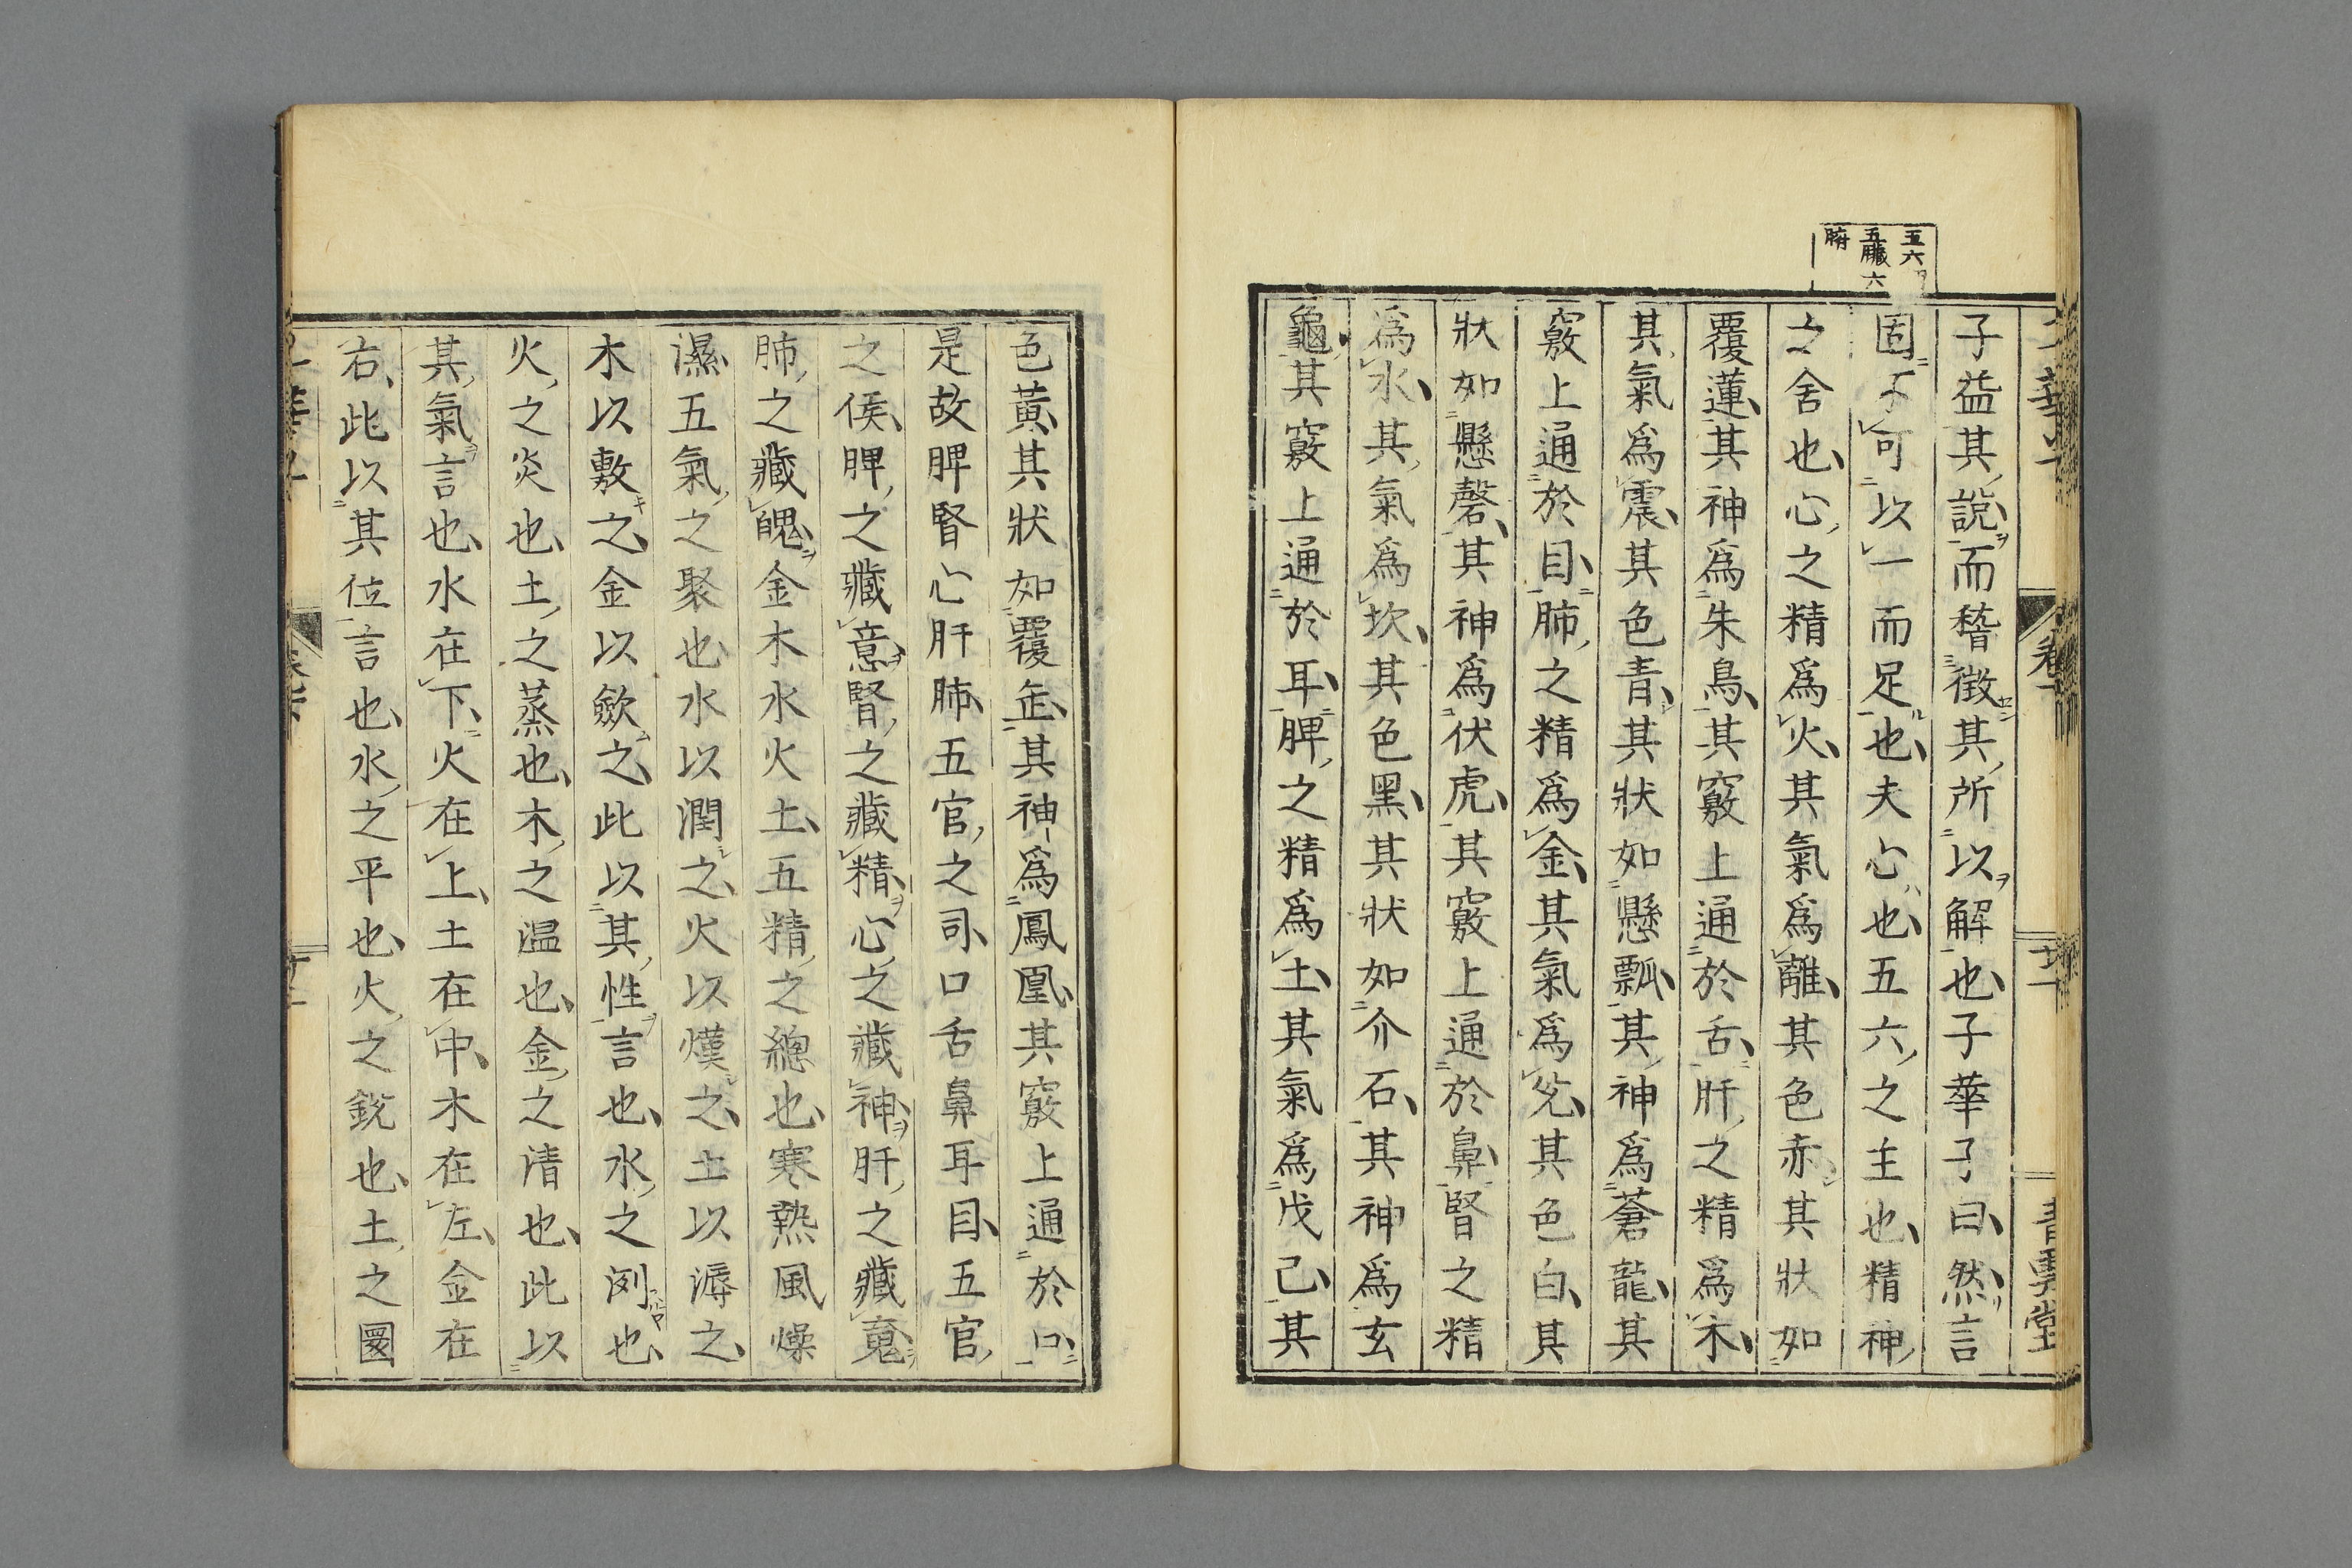 五六
五臟六
腑
子益其說而稽徵其所以解也子華子曰然言
固不可以一而足也夫心也五六之主也精神
之舍也心之精爲火其氣爲離其色赤其狀如
覆蓮其神爲朱鳥其竅上通於舌肝之精爲木
其氣爲震其色青其狀如懸瓢其神爲蒼龍其
竅上通於目肺之精爲金其氣爲兊其色白其
狀如懸磬其神爲伏虎其竅上通於鼻腎之精
爲水其氣爲坎其色黑其狀如介石其神爲玄
龜其竅上通於耳脾之精爲土其氣爲戊己其
色黃其狀如覆缶其神爲鳳凰其竅上通於口
是故脾腎心肝肺五官之司口舌鼻耳目五官
之侯脾之藏意腎之藏精心之藏神肝之藏䰟
肺之藏魄金木水火土五精之總也寒熱風燥
濕五氣之聚也水以潤之火以熯之土以溽之
木以敷之金以斂之此以其性言也水之洌也
火之炎也土之蒸也木之温也金之清也此以
其氣言也水在下火在上土在中木在左金在
右此以其位言也水之平也火之銳也土之圜